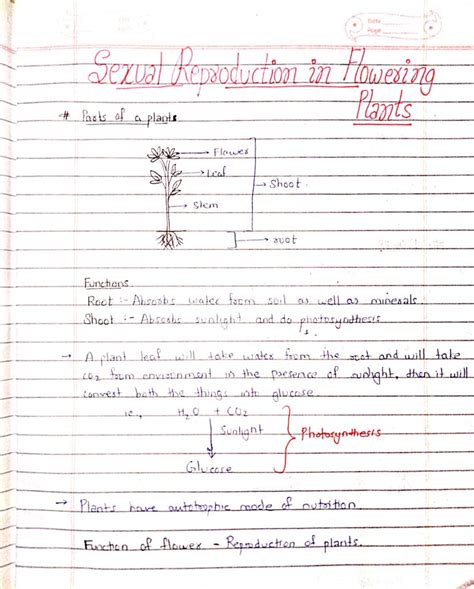 Date
Page
Sexual Reproduction in Flowering
Plants
# Parts of a plants
Flower
Leaf
Shoot
Stem
root
Functions
Root :- Absorbs water from soil as well as minerals.
Shoot :- Absorbs sunlight and do photosynthesis
→ A plant leaf will take water from the root and will take
CO2 from environment in the presence of sunlight, then it will
convert both the things into glucose.
i.e., H2O + CO2
Sunlight
Photosynthesis
Glucose
→ Plants have autotrophic mode of nutrition.
Function of flower - Reproduction of plants.